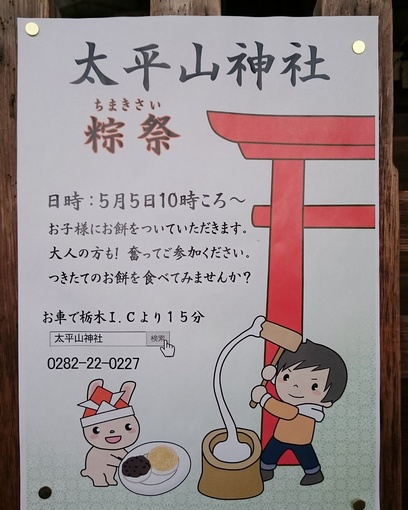 太平山神社
ちまきさい
粽祭
日時：5月5日10時ころ～
お子様にお餅をついていただきます。
大人の方も！奮ってご参加ください。
つきたてのお餅を食べてみませんか？
お車で栃木I.Cより15分
太平山神社 検索
0282-22-0227